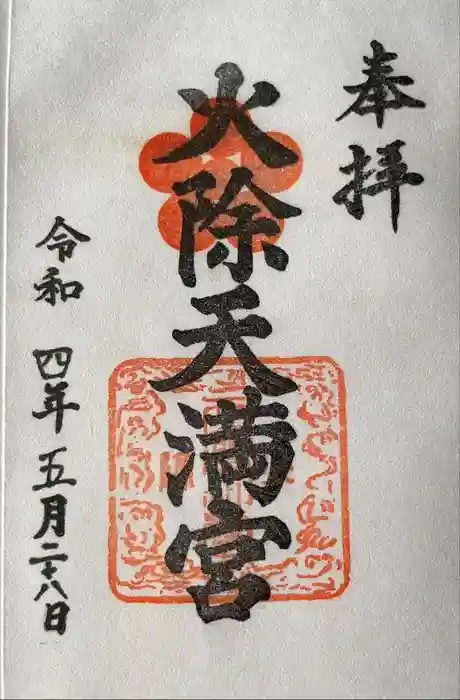 奉拝
火除天満宮
令和四年五月二十八日